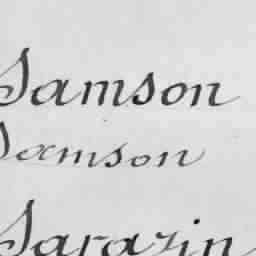 Samson
Samson
Sarazin